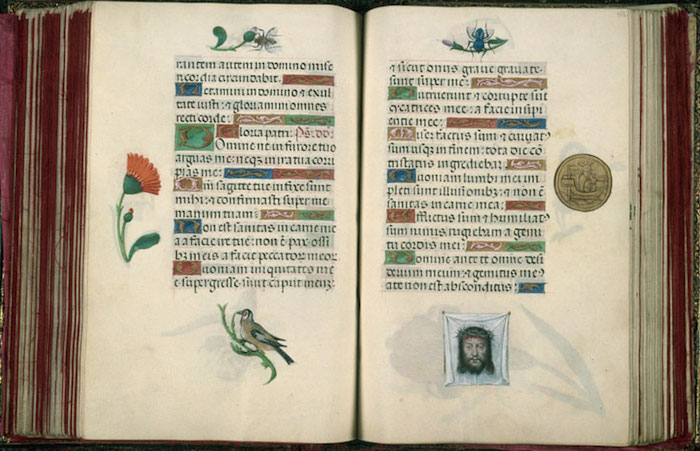 rantem autem in domino mise
ricordia circundabit:
Letamini in domino & exul
tate iusti: & gloriamini omnes
recti corde:
Gloria patri: Ps: dd:
Domine ne in furore tuo
arguas me: neq; in ira tua corri
pias me:
Qm̄ sagitte tue infixe sunt
mihi: & confirmasti super me
manum tuam:
Non est sanitas in carne mea
a facie ire tue: non ē pax ossi
b; meis a facie peccator meor
Quoniam iniquitates me
e supergresse sunt caput meū:
& sicut onus grave gravate
sunt super me:
Putruerunt & corrupte sūt
cicatrices mee: a facie insipi
entie mee:
Miser factus sum & curvatꝰ
sum usq; in finem: tota die cō
tristatus ingrediebar:
Quoniam lumbi mei im
pleti sunt illusionib; & non ē
sanitas in carne mea:
Afflictus sum & humiliatꝰ
sum nimis: rugiebam a gemi
tu cordis mei:
Domine ante te omne desi
derium meum: & gemitus meꝰ
a te non est absconditus: